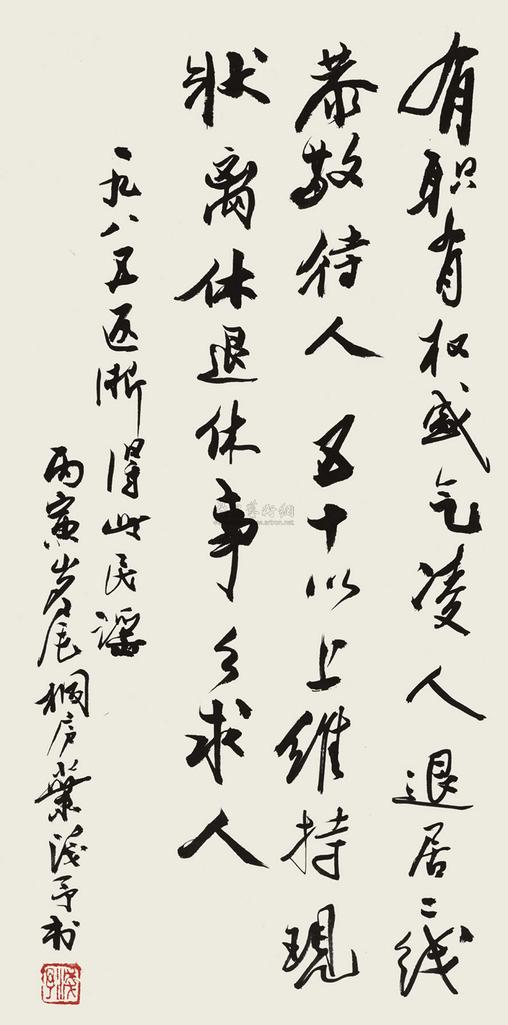 有职有权盛气凌人退居二线
恭敬待人五十以上维持现
状离休退休事事求人
一九八五返浙得此民谣
丙寅岁尾桐庐葉浅予书
浅予